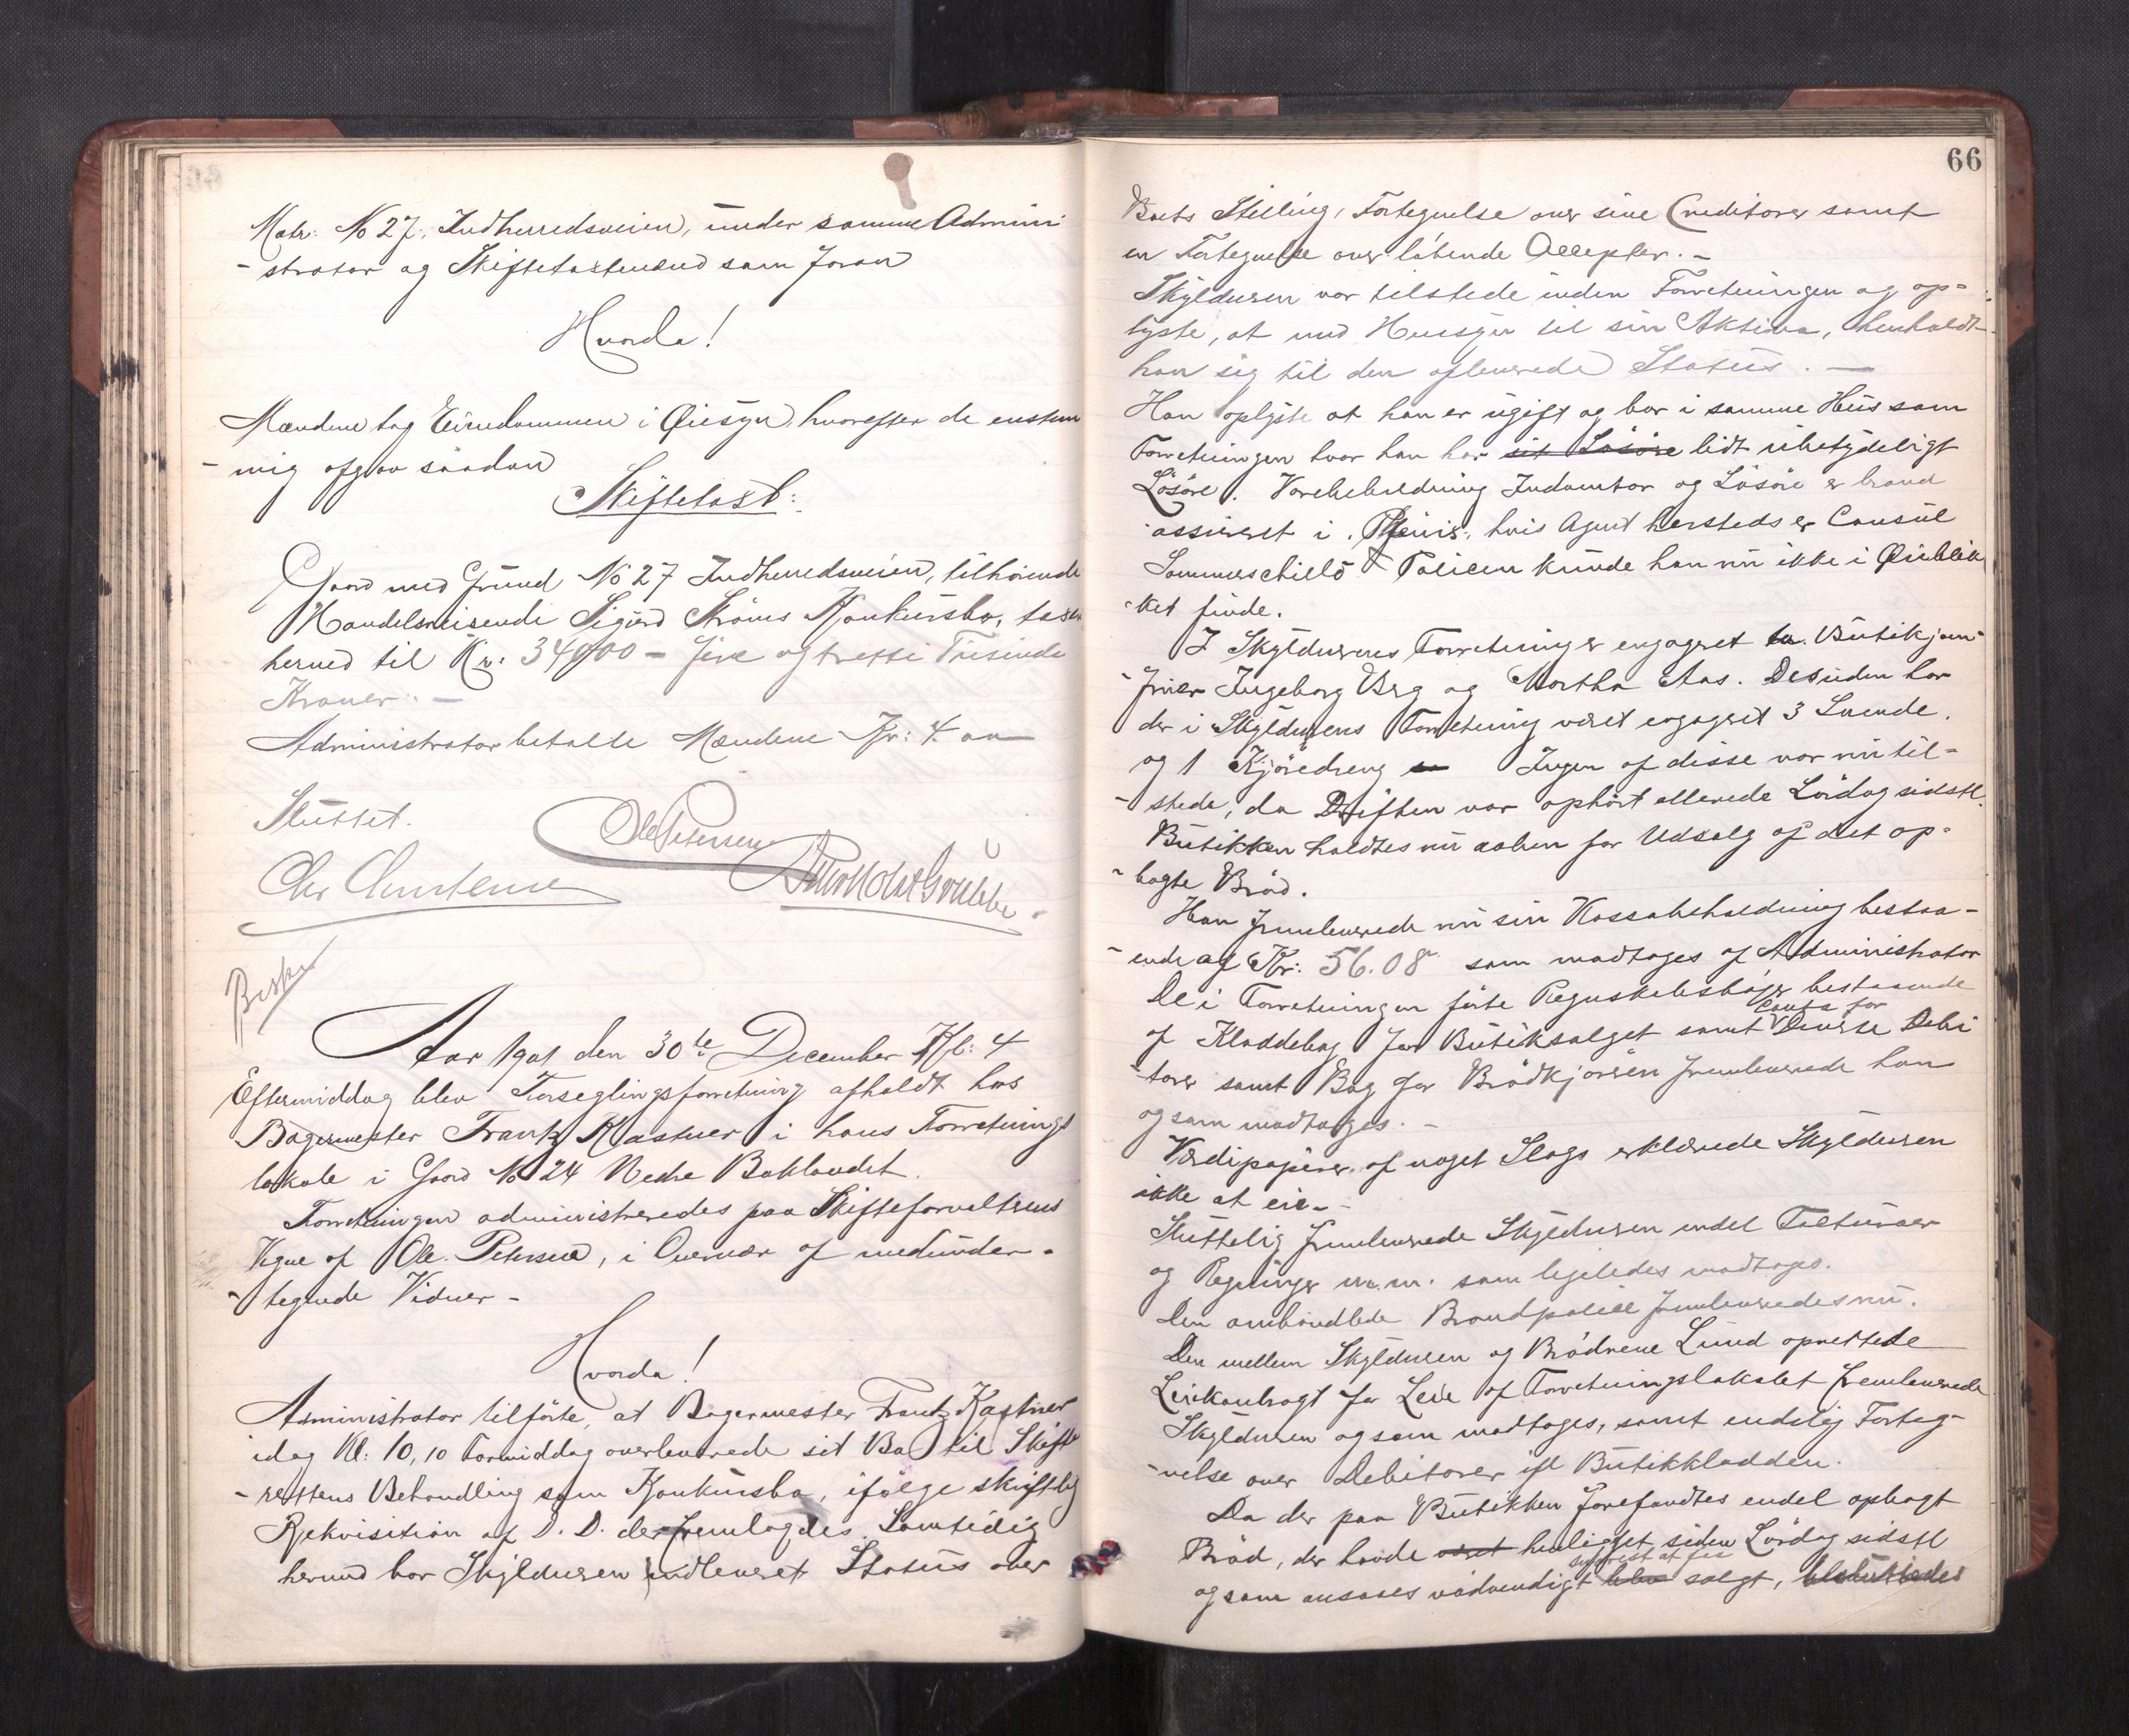 Matr: No 27, Indherredsveien, under samme Admini
- strator og Skiftetaxtmænd som foran
Hvorda!
Mændene tog Eiendommen i Øiesyn, hvorefter de enstem
- mig afgav saadan
Skiftetaxt:
Gaard med Grund No 27 Indherredsveien, tilhørende
Handelsreisende Sigurd Strøms Konkursbo, taxer
herved til Kr: 34000 = fire og tretti Tusinde
Kroner. —
Administrator betalte Mændene Kr: 4. —
Sluttet.
Ole Petersen
Chr Christensen
Beskr
Aar 1901 den 30te December Kl: 4
Eftermiddag blev Forseglingsforretning afholdt hos
Bagermester Frantz Kastner i hans Forretnings
lokale i Gaard No 24 Nedre Baklandet.
Forretningen administreredes paa Skifteforvalterens
Vegne af Ole Petersen, i Overvær af medunder-
- tegnede Vidner -
Hvorda!
Administrator tilførte, at Bagermester Frantz Kastner
idag Kl: 10,10 Formiddag overleverede sit Bo til Skifte
- rettens Behandling som Konkursbo, ifølge skriftlig
Rekvisition af D. D. der fremlagdes. Samtidig
hermed har Skyldneren indleveret Status over
66
Boets Stilling, Fortegnelse over sine Creditorer samt
en Fortegnelse over løbende Accepter. -
Skyldneren var tilstede under Forretningen og op-
lyste, at med Hensyn til sin Aktiva, henholdt
han sig til den afleverede Status. —
Han oplyste at han er ugift og bor i samme Hus som
Forretningen hvor han har sit Løsøre lidt ubetydeligt
Løsøre. Varebeholdning Inventar og Løsøre er brand
- assureret i Phønix, hvis Agent hersteds er Consul
Sommerschield. Policen kunde han nu ikke i Øieblik
- ket finde.
I Skyldnerens Forretning er engageret to Butikjom-
- fruer Ingeborg Berg og Martha Aas. Desuden har
der i Skyldnerens Forretning været engageret 3 Svende
og 1 Kjøredreng Ingen af disse var nu til-
- stede, da Driften var ophørt allerede Lørdag sidstl.
Butikken holdtes nu aaben for Udsalg af det op-
- bagte Brød.
Han fremleverede nu sin Kassabeholdning bestaa-
- ende af Kr: 56.08 som modtages af Administrator
De i Forretningen førte Regnskabsbøger bestaaende
af Kladdebog for Butiksalget samt Conto for Diverse Debi
- torer samt Bog for Brødkjøreren fremleverede han
og som modtages. -
Værdipapirer af noget Slags erklærede Skyldneren
ikke at eie. -
Sluttelig fremleverede Skyldneren endel Fakturaer
og Regninger m.m. som ligeledes modtages.
Den omhandlede Brandpolice fremleveredes nu.
Den mellem Skyldneren og Brødrene Lund oprettede
Leiekontrakt for Leie af Forretningslokalet fremleverede
Skyldneren og som modtages, samt endelig Forteg-
- nelse over Debitorer ifl Butikkladden.
Da der paa Butikken forefandtes endel opbagt
Brød, der havde været henligget siden Lørdag sidstl
og som ansaaes nødvendigt blev snarest at faa solgt, besluttedes